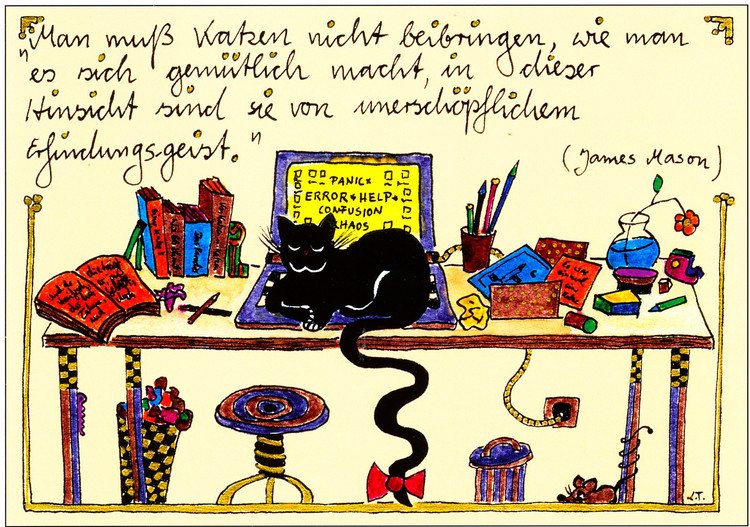 "Man muß Katzen nicht beibringen, wie man
es sich gemütlich macht, in dieser
Hinsicht sind sie von unerschöpflichem
Erfindungsgeist."
(James Mason)
PANIC*
ERROR*HELP*
CONFUSION
CHAOS
J.T.